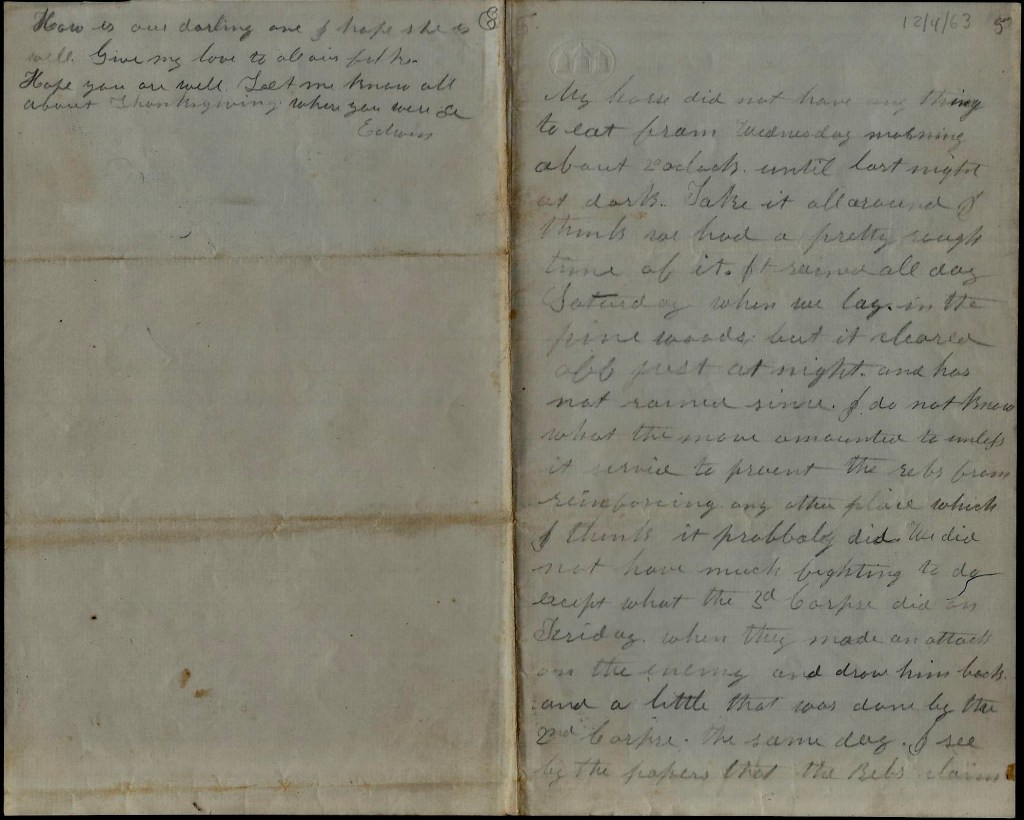 How is our darling one I hope she is
well. Give my love to all our folks.
Hope you are well Let me know all
about Thanksgiving where you were &c
Edwin
8
12/4/63 5
My horse did not have any thing
to eat from Wednesday morning
about 2 oclock. until last night
at dark. Take it all around I
think we had a pretty rough
time of it. It rained all day
Saturday when we lay in the
pine woods but it cleared
off just at night. and has
not rained since. I do not know
what the move amounted to unless
it servied to prevent the rebs from
reinforcing any other place which
I think it probbaly did. We did
not have much fighting to do
except what the 3d Corpse did on
Friday. when they made an attack
on the enemy and drove him back.
and a little that was done by the
2nd Corpse. the same day. I see
by the papers that the Rebs claim